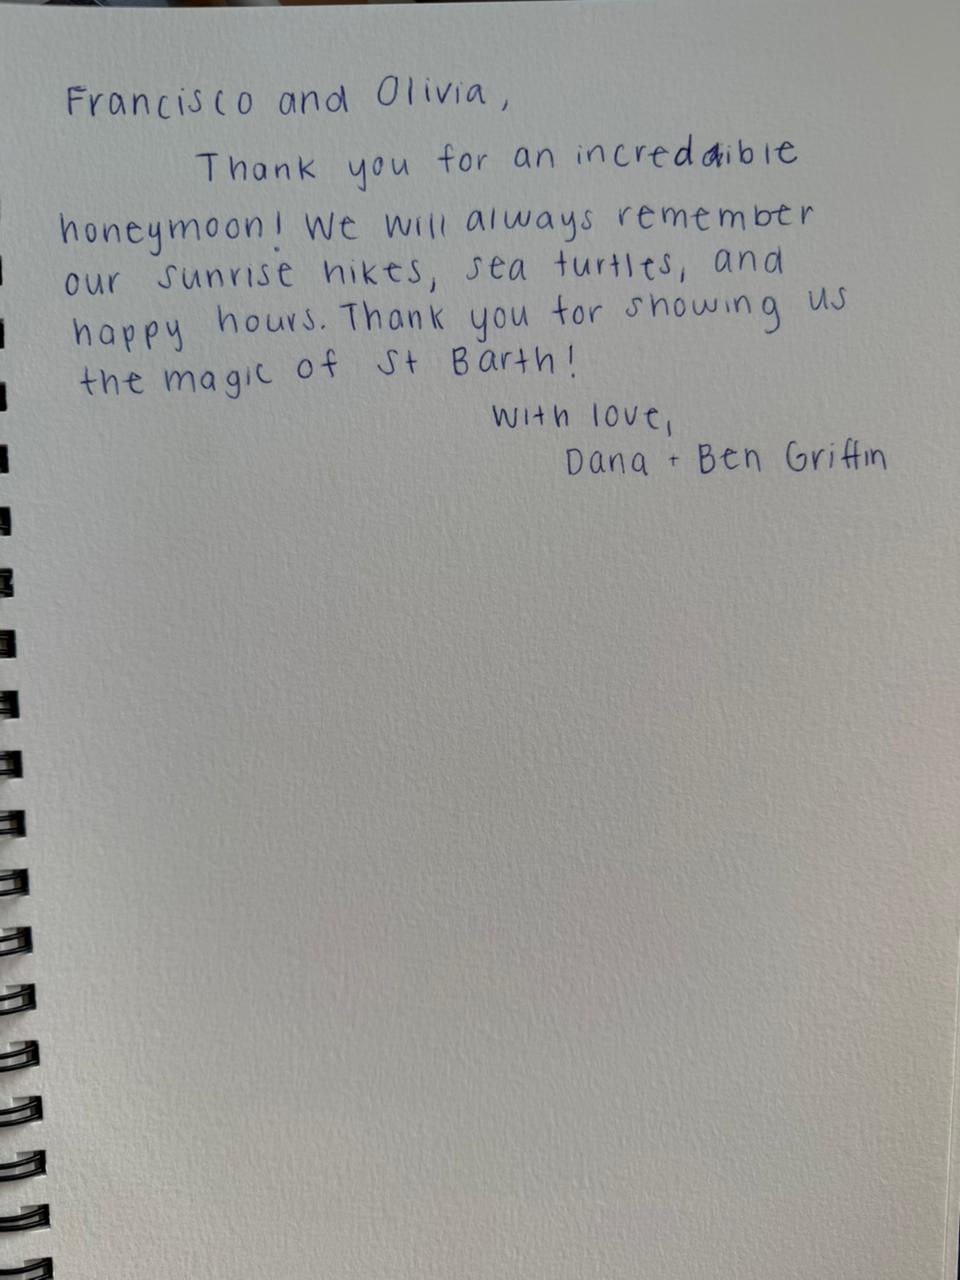 Francisco and Olivia,
Thank you for an incredible
honeymoon! We will always remember
our sunrise hikes, sea turtles, and
happy hours. Thank you for showing us
the magic of St Barth!
With love,
Dana + Ben Griffin